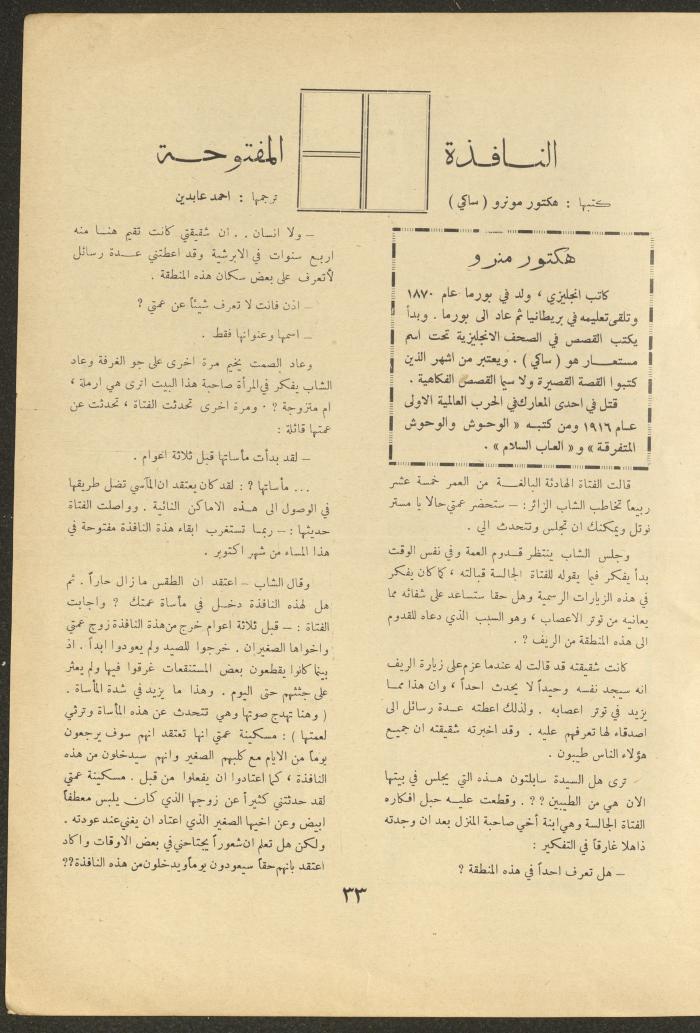 النافذة المفتوحة
كتبها : هكتور مونرو ( ساكي )
ترجمها : احمد عابدين
هكتور منرو
كاتب انجليزي ، ولد في بورما عام ١٨٧٠
وتلقى تعليمه في بريطانيا ثم عاد الى بورما . وبدأ
يكتب القصص في الصحف الانجليزية تحت اسم
مستعار هو ( ساكي ) . ويعتبر من اشهر الذين
كتبوا القصة القصيرة ولا سيما القصص الفكاهية .
قتل في احدى المعارك في الحرب العالمية الاولى
عام ١٩١٦ ومن كتبه « الوحوش والوحوش
المتفرقة » و « العاب السلام » .
قالت الفتاة الهادئة البالغة من العمر خمسة عشر
ربيعاً تخاطب الشاب الزائر : – ستحضر عمتي حالا يا مستر
نوتل ويمكنك ان تجلس وتتحدث الي .
وجلس الشاب ينتظر قدوم العمة وفي نفس الوقت
بدأ يفكر فيما يقوله للفتاة الجالسة قبالته ، كما كان يفكر
في هذه الزيارات الرسمية وهل حقا ستساعد على شفائه مما
يعانيه من توتر الاعصاب ، وهو السبب الذي دعاه للقدوم
الى هذه المنطقة من الريف ? .
كانت شقيقته قد قالت له عندما عزم على زيارة الريف
انه سيجد نفسه وحيداً لا يحدث احداً ، وان هذا مما
يزيد في توتر اعصابه . ولذلك اعطته عدة رسائل الى
اصدقاء لها تعرفهم عليه . وقد اخبرته شقيقته ان جميع
هؤلاء الناس طيبون .
ترى هل السيدة سابلتون هذه التي يجلس في بيتها
الان هي من الطيبين ? ? . وقطعت عليه حبل افكاره
الفتاة الجالسة وهي ابنة أخي صاحبة المنزل بعد ان وجدته
ذاهلا غارقاً في التفكير :
– هل تعرف احداً في هذه المنطقة ?
– ولا انسان . . ان شقيقتي كانت تقيم هنا منه
اربع سنوات في الابرشية وقد اعطتني عدة رسائل
لأتعرف على بعض سكان هذه المنطقة .
– اذن فانت لا تعرف شيئاً عن عمتي ?
– اسمها وعنوانها فقط .
وعاد الصمت يخيم مرة اخرى على جو الغرفة وعاد
الشاب يفكر في المرأة صاحبة هذا البيت اترى هي ارملة ،
ام متزوجة ? . ومرة اخرى تحدثت الفتاة ، تحدثت عن
عمتها قائلة :
– لقد بدأت مأساتها قبل ثلاثة اعوام .
... مأساتها ? : لقد كان يعتقد ان المآسي تضل طريقها
في الوصول الى هذه الاماكن النائية . وواصلت الفتاة
حديثها : – ربما تستغرب ابقاء هذة النافذة مفتوحة في
هذا المساء من شهر اكتوبر .
وقال الشاب – اعتقد ان الطقس ما زال حاراً . ثم
هل لهذه النافذة دخل في مأساة عمتك ? واجابت
الفتاة : – قبل ثلاثة اعوام خرج من هذة النافذة زوج عمتي
واخواها الصغيران . خرجوا للصيد ولم يعودوا ابداً . اذ
بينما كانوا يقطعون بعض المستنقعات غرقوا فيها ولم يعثر
على جثثهم حتى اليوم . وهذا ما يزيد في شدة المأساة .
( وهنا تهدج صوتها وهي تتحدث عن هذه المأساة وترثي
لعمتها ) : مسكينة عمتي انها تعتقد انهم سوف يرجعون
يوماً من الايام مع كلبهم الصغير وانهم سيدخلون من هذه
النافذة ، كما اعتادوا ان يفعلوا من قبل . مسكينة عمتي
لقد حدثتني كثيراً عن زوجها الذي كان يلبس معطفاً
ابيض وعن اخيها الصغير الذي اعتاد ان يغني عند عودته .
ولكن هل تعلم ان شعوراً يجتاحني في بعض الاوقات واكاد
اعتقد بانهم حقاً سيعودون يوماً ويدخلون من هذه النافذة??
٣٣